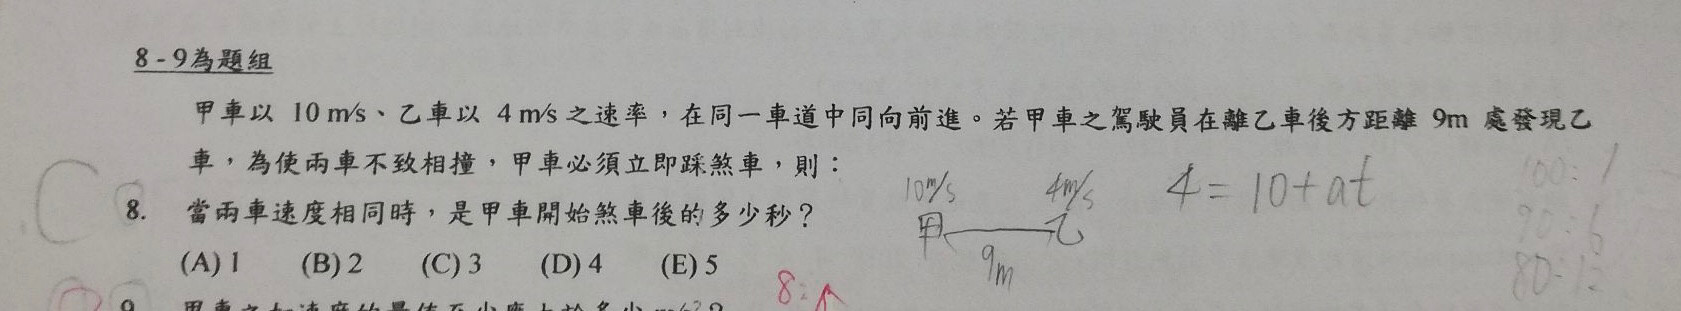 8 - 9為題組
甲車以 10 m/s、乙車以 4 m/s 之速率，在同一車道中同向前進。若甲車之駕駛員在離乙車後方距離 9m 處發現乙
車，為使兩車不致相撞，甲車必須立即踩煞車，則：
C 8. 當兩車速度相同時，是甲車開始煞車後的多少秒？
10m/s 4m/s 4=10+at
甲 乙
9m
100:1
90:6
80:12
(A) 1 (B) 2 (C) 3 (D) 4 (E) 5
8:
9. 甲車之加速度的量值至少應大於多少 m/s²？